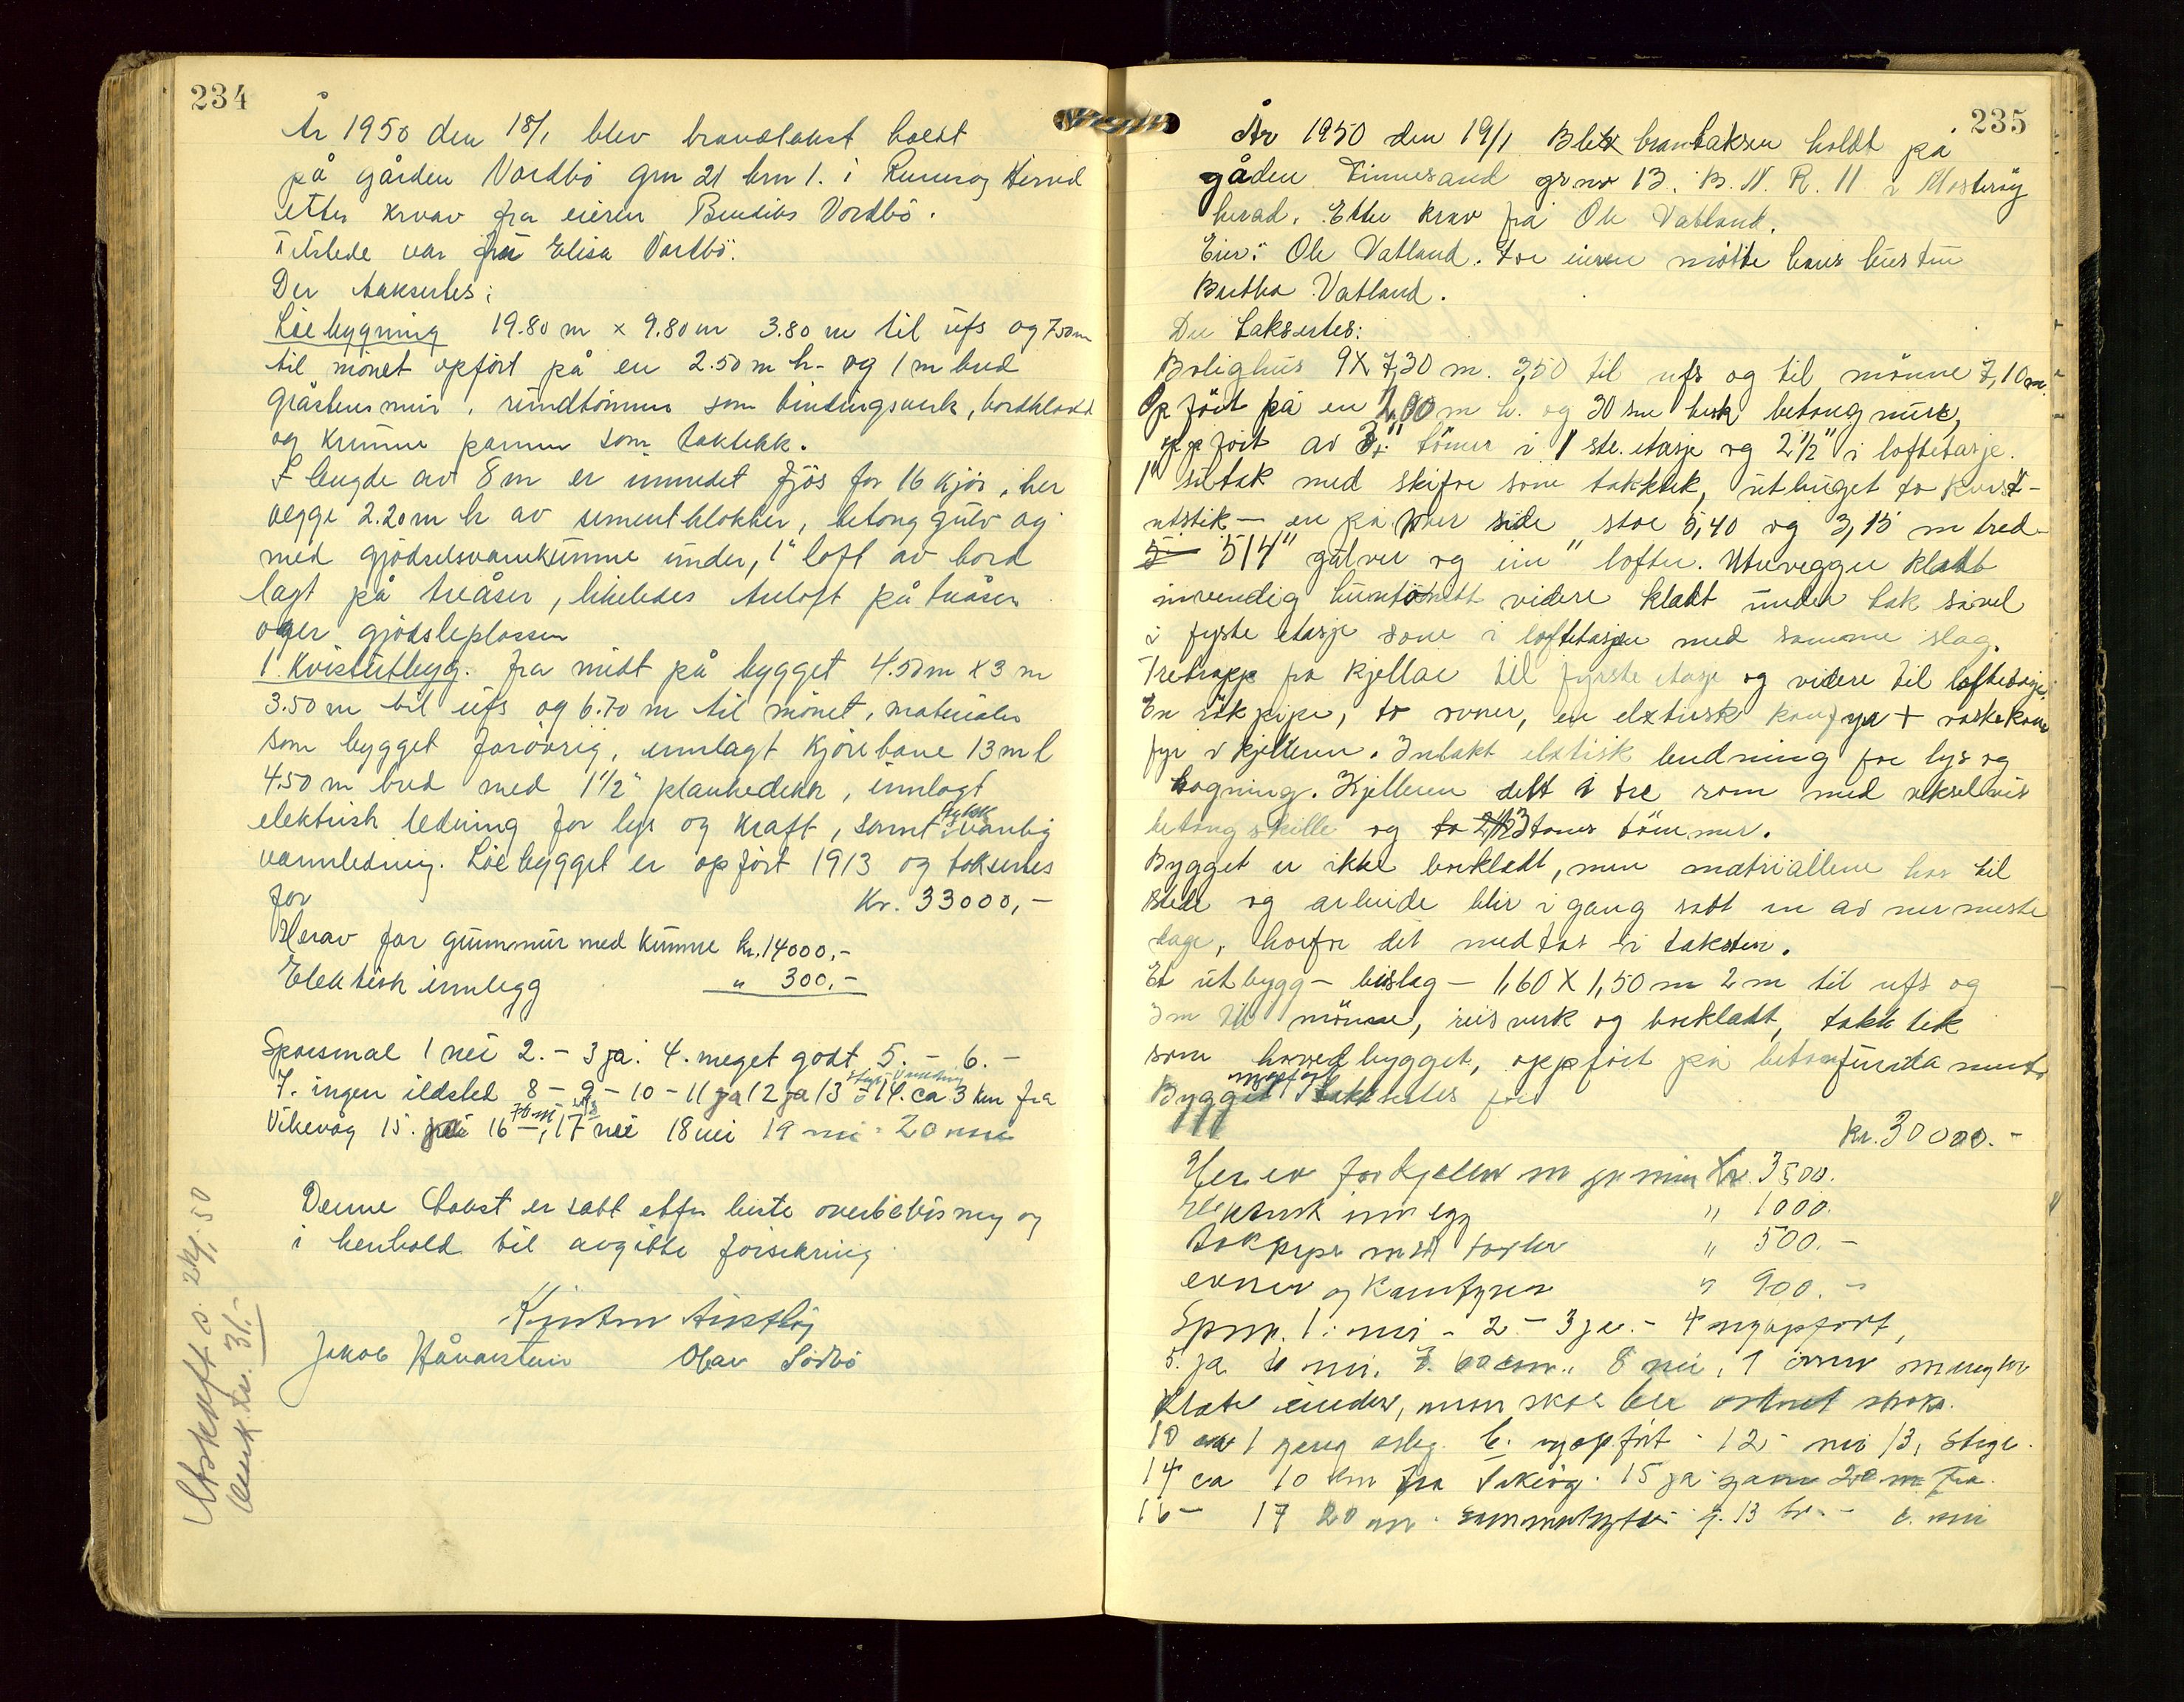 234
År 1950 den 18/1 blev brandtakst holdt
på gården Vordbö grn 21 brn 1. i Rennesøy Herred
etter krav fra eieren Bendiks Vordbö.
Tilstede var fru Elisa Vordbö.
Der taksertes:
Löebygning 19.80 m x 9.80 m 3.80 m til ufs og 7.50 m
til mönet opfört på en 2.50 m h. og 1 m bred
gråstensmur, rundtömmer som bindingsverk, bordkledd
og krumme panner som taktekk.
I lengde av 8 m er innredet fjös for 16 kjör, her
vegge 2.20 m h av sementblokker, betong gulv og
med gjödselsvannkumme under, 1" loft av bord
lagt på treåser, likeledes treloft på treåser
over gjödselplassen
1 Kvistutbygg. fra midt på bygget 4.50 m x 3 m
3.50 m til ufs og 6.70 m til mönet, materialer
som bygget forövrig, innlagt kjörebane 13 m l
4.50 m bred med 1 1/2" plankedekk, innlagt
elektrisk ledning for lys og kraft, samt vanlig
vannledning. Löebygget er opfört 1913 og takseres
for Kr. 33000,-
Herav for grunnmur med kumme kr. 14000,-
Elektrisk innlegg " 300,-
Spörsmål 1 nei 2. - 3 ja. 4. meget godt 5. - 6. -
7. ingen ildsted 8 - 9 - 10 - 11 ja 12 ja 13 - 14. ca 3 km fra
Vikevåg 15. 16 -, 17 nei 18 nei 19 nei 20 nei
Denne takst er satt etter beste overbevisning og
i henhold til avgitte forsikring
Jakob Håvarstein Olav Sörbö
Utskrift s. 24/1. 50
Innk. kr. 31.-
235
År 1950 den 19/1 Blev brantaksen holdt på
gåden Finnesand gr nr 13. B. N. R. 11 i Mosteröy
herad. Etter krav frå Ole Vatland.
Eier: Ole Vatland. For eieren mötte hans hustru
Bertha Vatland.
Der taksertes:
Bolighus 9 X 7,30 m. 3,50 til ufs og til mönne 7,10 m.
Op fört på en 2,00 m h. og 30 sm tjuk betong mure,
oppfört av 3" tömer i 1 ste. etasje og 2 1/2" i loftetasje.
1" sutak med skifer som taktekk, utbuget to kvist-
utstik - en på hver side stor 5,40 og 3,15 m bred
5/4" gulver og ein" lofter. Utevegger kledt
invendig huntonitt videre kledt under tak såvel
i fyrste etasje som i loftetasjen med samme slag.
Tretrapp fra kjellar til fyrste etasje og videre til loftetasje.
En rökpipe, to ovner, en elektrisk komfyr + vaskekome
fyr i kjelleren. Inlakt elektisk ledning for lys og
kogning. Kjelleren delt i tre rom med vekselvis
betong skille og to 3 toms tömmer.
Bygget er ikke borkledt, men matriallene har til
stede og arbeide blir i gang satt en av nermeste
dage, hvorfor det medtas i taksten.
Et utbygg - bislag - 1,60 X 1,50 m 2 m til ufs og
3 m til mönne, reisverk og borkledt, taktek
som hovedbygget, oppfört på betonfundament
Bygget nyopfört taksertes for
kr. 30000.-
Herav for kjeller m gr mur kr. 3500.
Elektrisk innlegg " 1000.
Rökpipe med " 500.-
ovner og Kamfyren " 900.-
Spm. 1: nei - 2 - 3 ja. - 4 nyopfört,
5. ja 6 nei. 7. 60 cm., 8 nei, 1 ovner mangler
Plate under, men skal bli ordnet straks.
10 1 nyopfört - 12 - nei 13, stige.
14 ca 10 km fra 15 ja 20 m fra
16 - 17 20 m nei